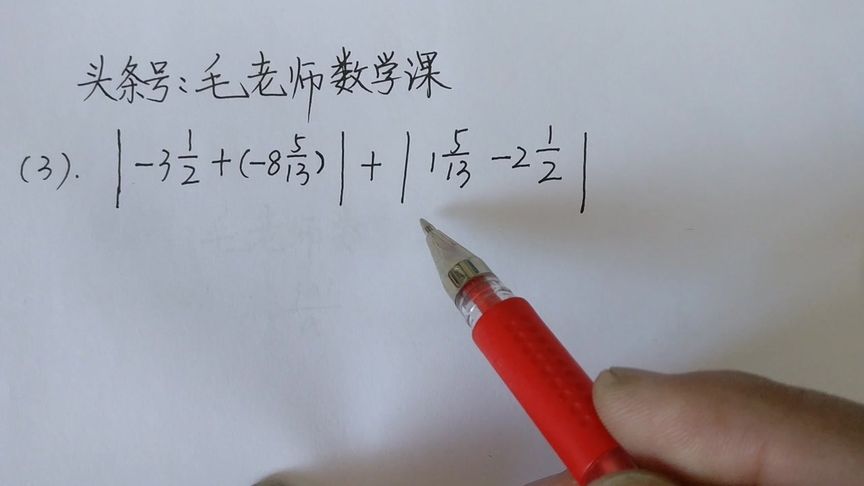 头条号:毛老师数学课
(3). |-3 1/2+(-8 5/13)|+|1 5/13-2 1/2|